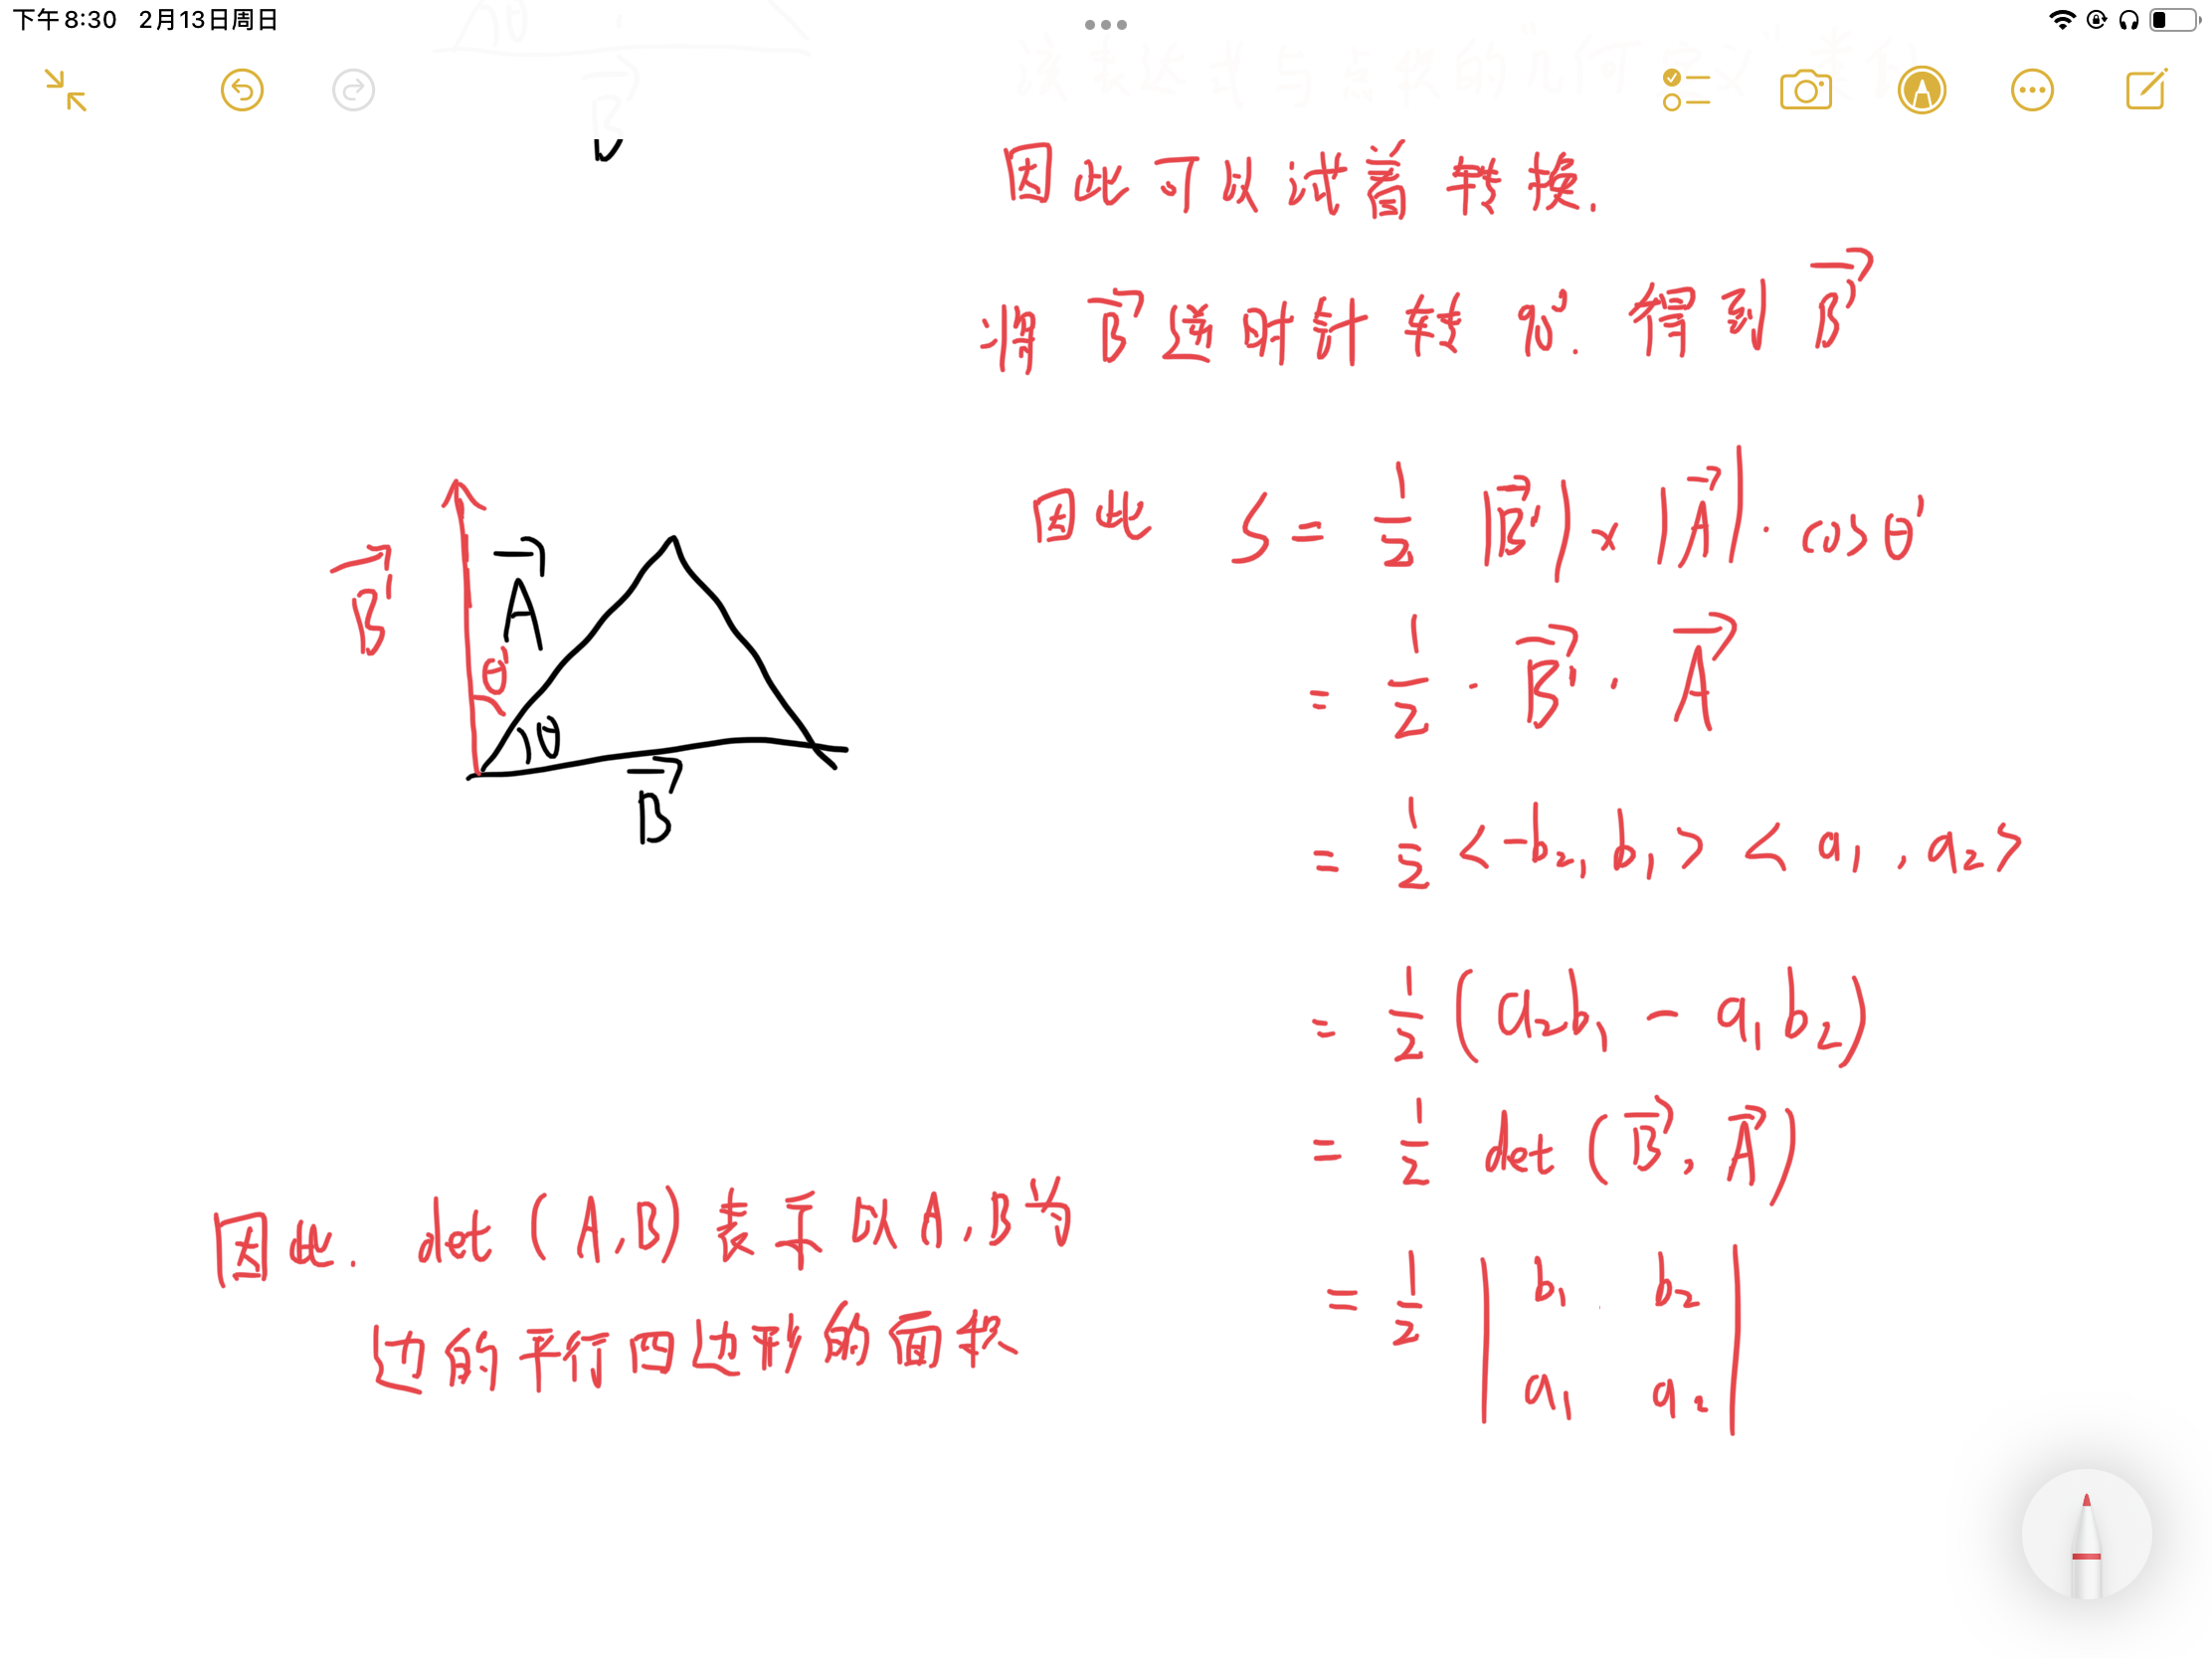 下午8:30 2月13日周日
该表达式与点积的"几何定义"类似
因此可以试着转换.
将 B⃗ 逆时针转 90°. 得到 B⃗'
B⃗'
A⃗
θ'
θ
B⃗
因此 S = 1/2 |B⃗'| × |A⃗| · cosθ'
= 1/2 · B⃗' · A⃗
= 1/2 <-b₂, b₁> <a₁, a₂>
= 1/2 (a₂b₁ - a₁b₂)
= 1/2 det (B⃗, A⃗)
= 1/2 | b₁ b₂
a₁ a₂ |
因此. det (A, B) 表示以A, B为
边的平行四边形的面积